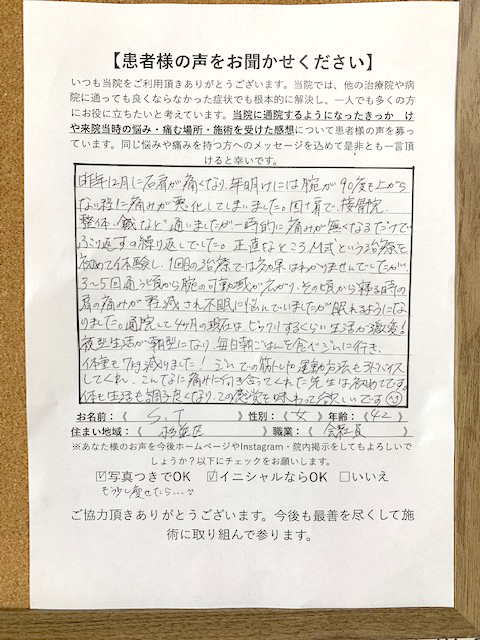 【患者様の声をお聞かせください】
いつも当院をご利用頂きありがとうございます。当院では、他の治療院や病
院に通っても良くならなかった症状でも根本的に解決し、一人でも多くの方
にお役に立ちたいと考えています。当院に通院するようになったきっか　け
や来院当時の悩み・痛む場所・施術を受けた感想について患者様の声を募っ
ています。同じ悩みや痛みを持つ方へのメッセージを込めて是非とも一言頂
けると幸いです。
昨年12月に右肩が痛くなり、年明けには腕が90度も上がら
ない程に痛みが悪化してしまいました。四十肩で、接骨院、
整体、鍼など通いましたが一時的に痛みが無くなるだけで
ぶり返すの繰り返しでした。正直なところM式という治療を
初めて体験し、1回の治療では効果はわかりませんでしたが、
3〜5回通う頃から腕の可動域が広がり、その頃から寝る時の
肩の痛みが軽減され不眠に悩んでいましたが眠れるようにな
りました。通院して4ヶ月の現在は、ビックリするくらい生活が激変！
夜型生活が朝型になり、毎日朝ごはんを食べジムに行き、
体重も7kg減りました！ジムでの筋トレや運動方法もアドバイス
してくれ、こんなに痛みに向き合ってくれた先生は初めてです。
体も生活も調子良くなり、この感覚を味わって欲しいです
お名前：《　S.T　》性別：《　女　》年齢：《　42　》
住まい地域：《　杉並区　》職業：《　会社員　》
※あなた様のお声を今後ホームページやInstagram・院内掲示をしてもよろしいで
しょうか？以下にチェックをお願いします。
☑写真つきでOK　☑イニシャルならOK　□いいえ
もう少し痩せたら…
ご協力頂きありがとうございます。今後も最善を尽くして施
術に取り組んで参ります。